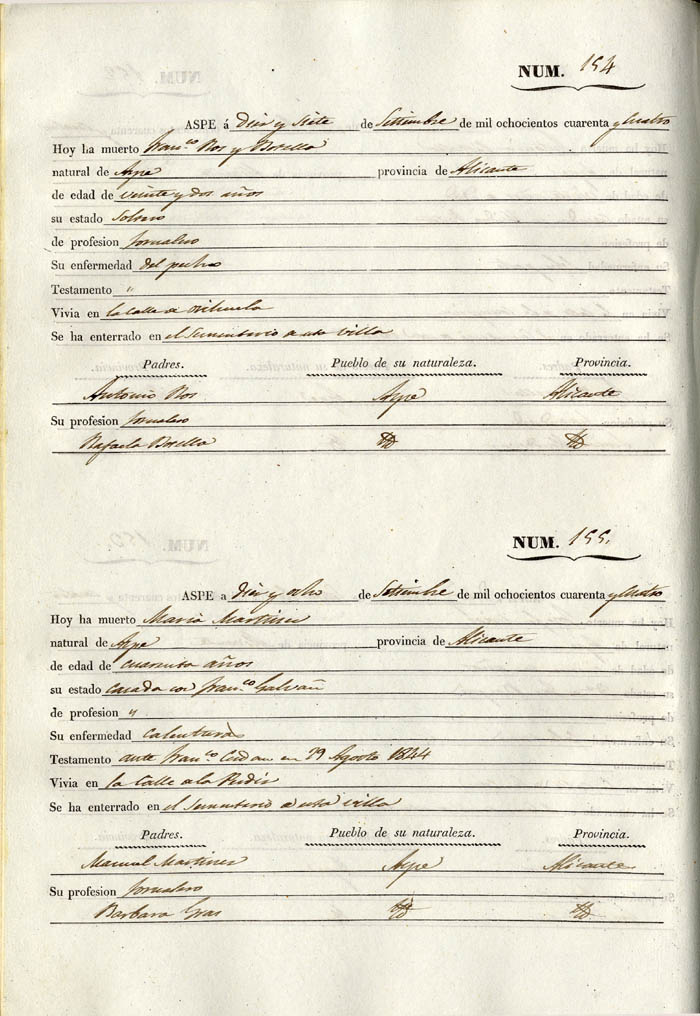 NUM. 154
ASPE á Diez y Siete de Setiembre de mil ochocientos cuarenta y Cuatro
Hoy ha muerto Fran.co Ros y Botella
natural de Aspe provincia de Alicante
de edad de veinte y dos años
su estado Soltero
de profesion Jornalero
Su enfermedad del pecho
Testamento "
Vivia en la Calle de Orihuela
Se ha enterrado en el Sementerio de esta villa
Padres. Pueblo de su naturaleza. Provincia.
Antonio Ros Aspe Alicante
Su profesion Jornalero
Rafaela Botella
NUM. 155.
ASPE a Diez y ocho de Setiembre de mil ochocientos cuarenta y Cuatro
Hoy ha muerto Maria Martinez
natural de Aspe provincia de Alicante
de edad de cuarenta años
su estado casada con Fran.co Galvañ
de profesion "
Su enfermedad calenturas
Testamento ante Fran.co en 29 Agosto 1844
Vivia en la Calle
Se ha enterrado en el Sementerio de esta villa
Padres. Pueblo de su naturaleza. Provincia.
Manuel Martinez Aspe Alicante
Su profesion Jornalero
Barbara Gras